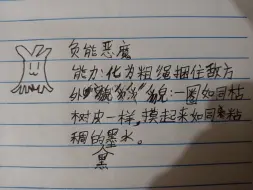 负能恶魔
能力:化为粗绳捆住敌方
外貌:一圈如同枯
树皮一样,摸起来如同粘
稠的墨水。
黑